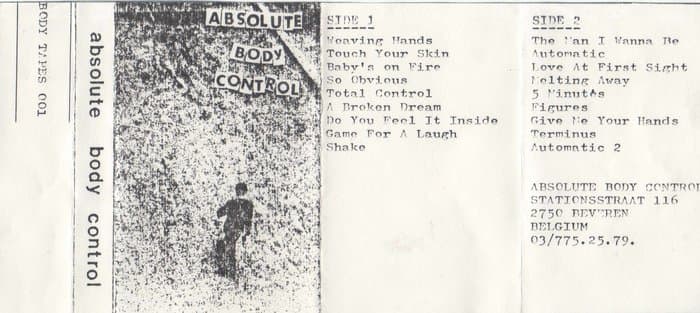 BODY TAPES 001
absolute body control
ABSOLUTE
BODY
CONTROL
SIDE 1
Weaving Hands
Touch Your Skin
Baby's on Fire
So Obvious
Total Control
A Broken Dream
Do You Feel It Inside
Game For A Laugh
Shake
SIDE 2
The Man I Wanna Be
Automatic
Love At First Sight
Melting Away
5 Minutes
Figures
Give Me Your Hands
Terminus
Automatic 2
ABSOLUTE BODY CONTROL
STATIONSSTRAAT 116
2750 BEVEREN
BELGIUM
03/775.25.79.